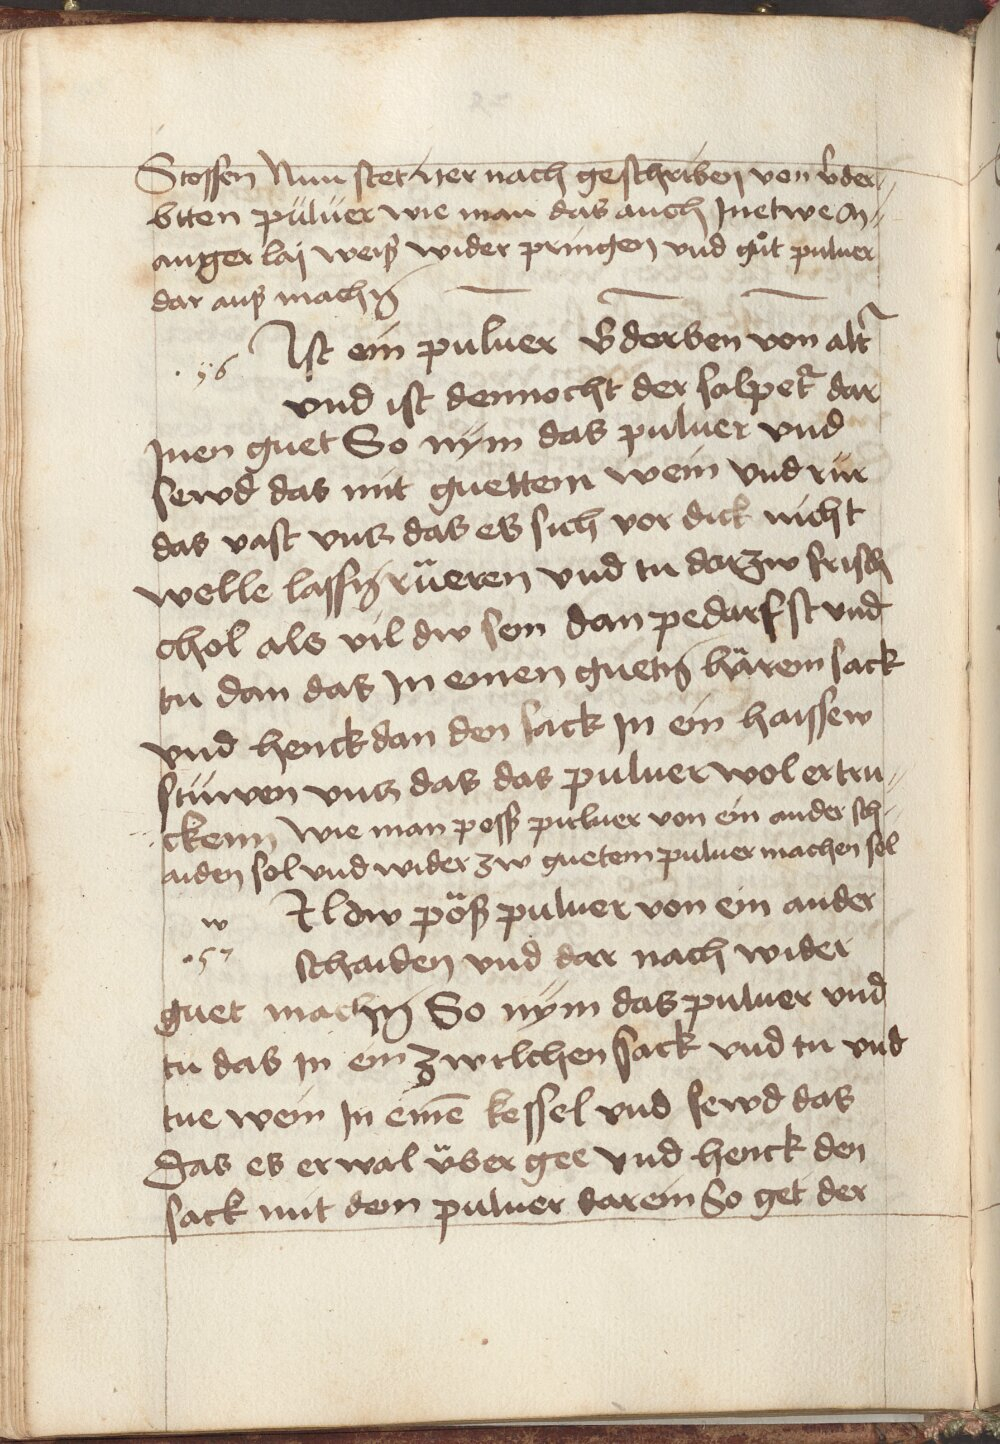 Stossen Nun stet her nach geschriben von vͤder-
btten püluer wie man das auch Inetwe m-
anger laj weiß wider pringen vnd gůt puluer
dar auß machn̄
.56. Ist ein puluer v̄derben von altr̄
vnd ist dennocht der salpetr̄ dar
Inen guet So nÿm das puluer vnd
sewd das mit guettem wein vnd rür
das vast vncz das es sich vor dick nicht
welle lassn̄ rüeren vnd tu darzw frisch
chol als vil dw sen dan pedarfst vnd
tu dan das In einen guetn̄ härem sack
vnd henck dan den sack In ein haissew
stuwen vncz das das puluer wol ertru-
ckenn Wie man poss puluer von ein ander sch-
aiden sol vnd wider zw guetem puluer machen sol
w
.57 Ildw pöß puluer von ein ander
schaiden vnd dar nach wider
guet machn̄ So nÿm das puluer vnd
tu das In ein zwilchen sack vnd tu vnd
tue wein In einē kessel vnd sewd das
Das es er wal über gee vnd henck den
sack mit dem puluer darein So get der